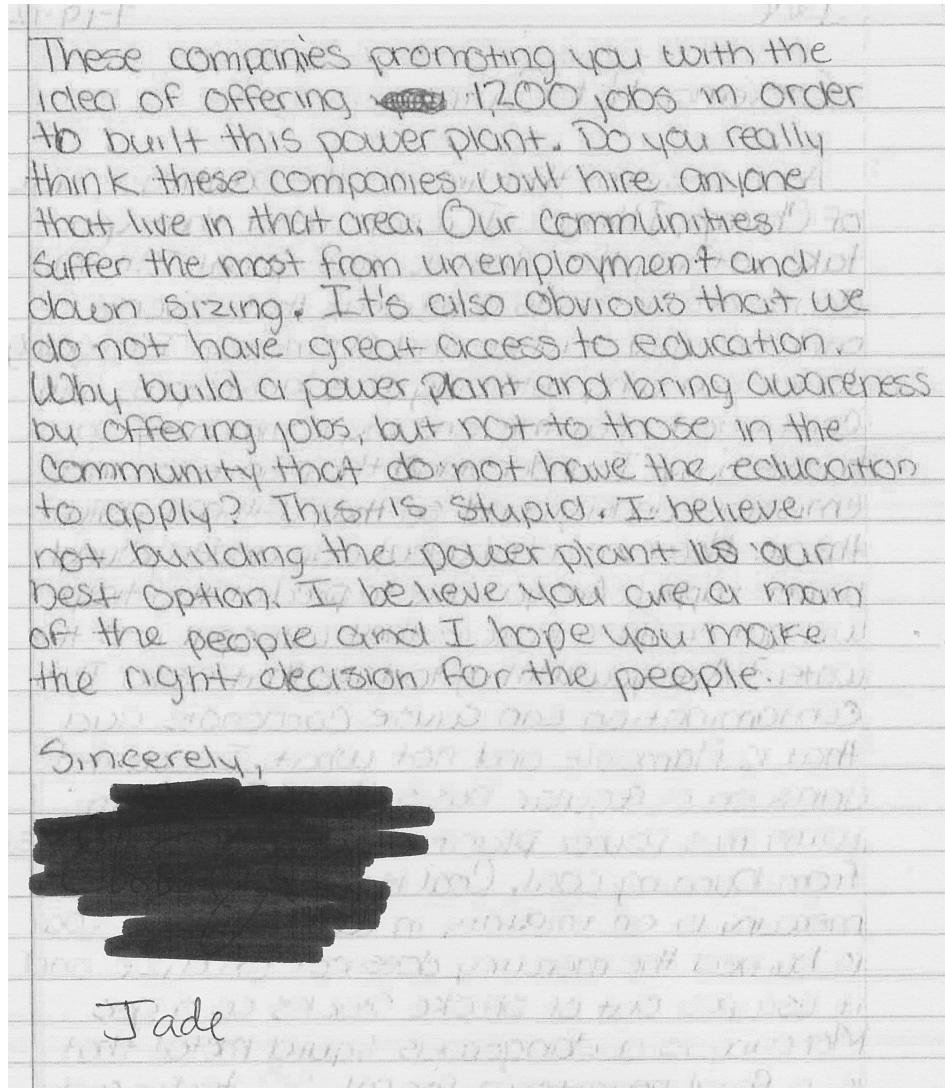 These companies promoting you with the
idea of offering 1,200 jobs in order
to built this power plant. Do you really
think these companies will hire anyone
that live in that area. Our communities"
suffer the most from unemployment and
down sizing. It's also obvious that we
do not have great access to education.
Why build a power plant and bring awareness
by offering jobs, but not to those in the
community that do not have the education
to apply? This is stupid. I believe
not building the power plant is our
best option. I believe you are a man
of the people and I hope you make
the right decision for the people.
Sincerely,
Jade